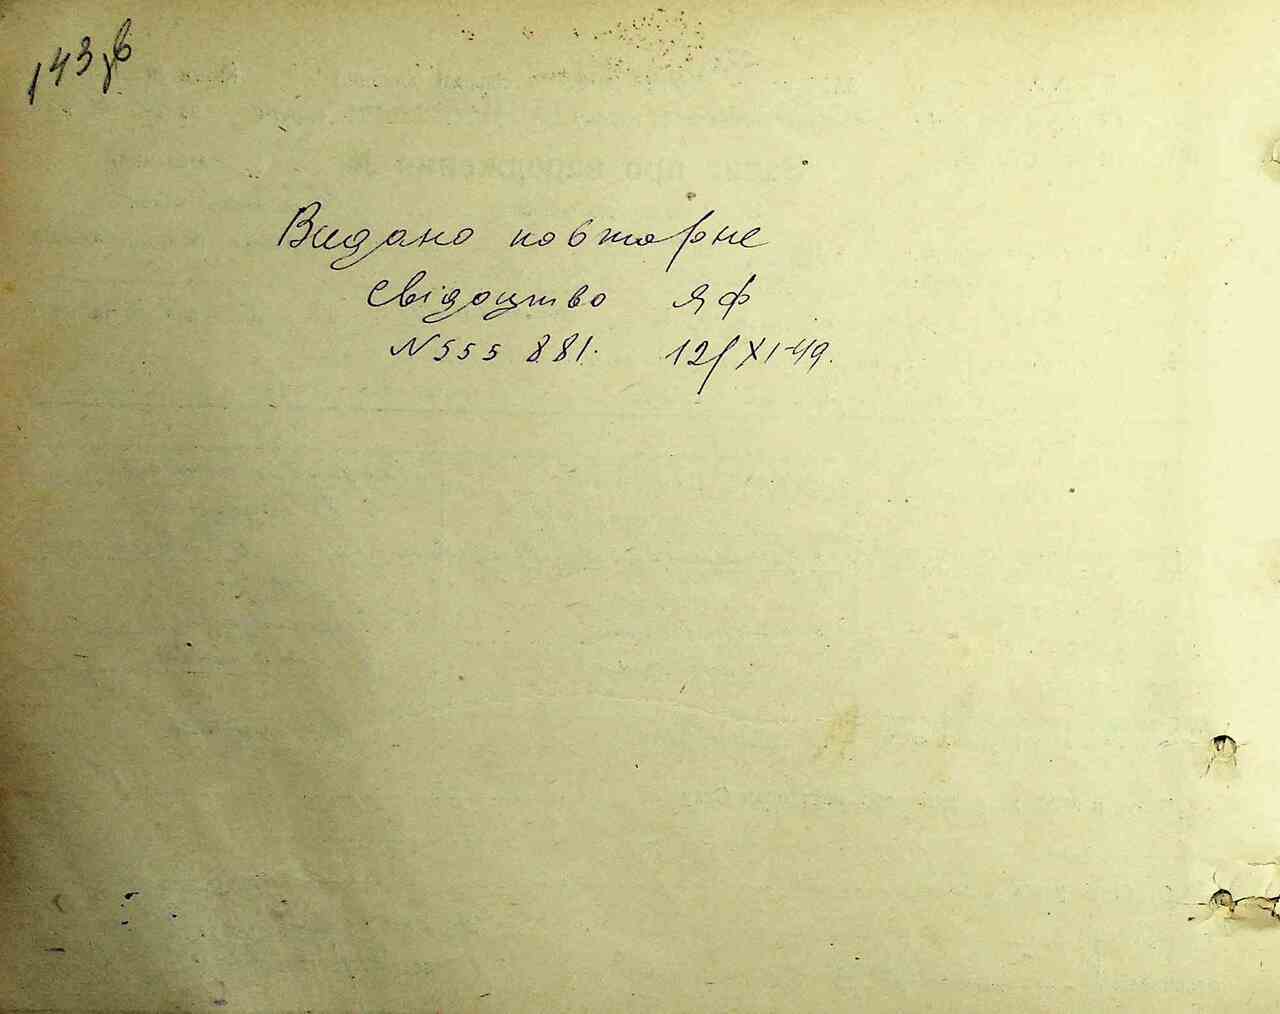 143зв
Видано повторне
свідоцтво ЯФ
N 555 881. 12/XI-49.